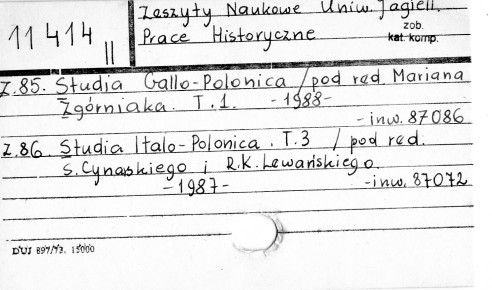 Zeszyty Naukowe Uniw. Jagiell.
11414 II
Prace Historyczne
zob.
kat. komp.
Z.85. Studia Gallo-Polonica / pod red. Mariana
Zgórniaka. T.1. -1988-
-inw. 87086
Z.86. Studia Italo-Polonica. T.3 / pod red.
S. Cynarskiego i R.K. Lewańskiego.
-1987- -inw. 87072
DUJ 897/73. 15000